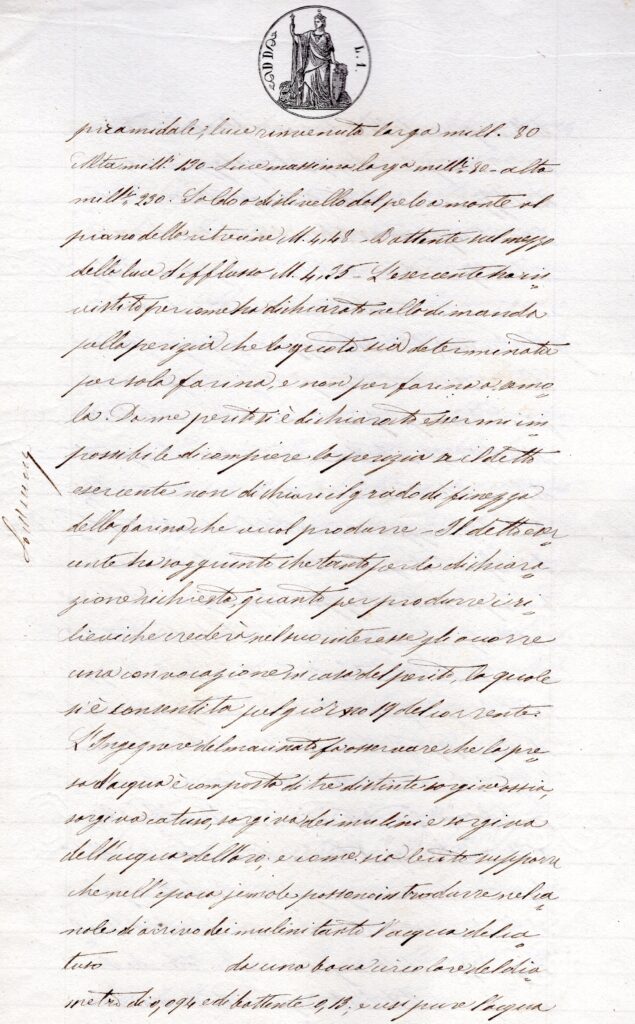 DD
L. 1.
piramidale, luce rinvenuta larga mill. 80
Alta mill.i 130 - Luce massima larga mill.i 80 - alta
mill.i 230. Saldo o dislivello dal pelo a monte al
piano dello ritrecine M. 4,48 - Battente sul mezzo
della luce d'efflusso M. 4,35 - L'esercente ha in=
sistito per come ha dichiarato nella dimanda
sulla perizia che la quota sia determinata
per sola farina, e non per farina a semo=
la. Da me perito si è dichiarato essermi im=
possibile di compiere la perizia se il detto
esercente non dichiari il grado di finezza
della farina che vuol produrre - Il detto eser=
cente ha soggiunto che tanto per la dichiara=
zione richiesta, quanto per produrre i ri=
lievi che crederà nel suo interesse gli occorre
una convocazione in casa del perito, la quale
si è consentita pel giorno 19 del corrente.
L'Ingegnere del macinato fa osservare che la pre=
sa d'acqua è composta di tre distinte sorgive ossia,
sorgiva catuso, sorgiva dei mulini e sorgiva
dell'acqua dell'oro, e come sia lecito supporre
che nell'epoca jemale possono introdurre nel ca=
nale di arrivo dei mulini tanto l'acqua del ca=
tuso da una bocca circolare del dia=
metro di 0,094 e del battente 0,13; e così pure l'acqua